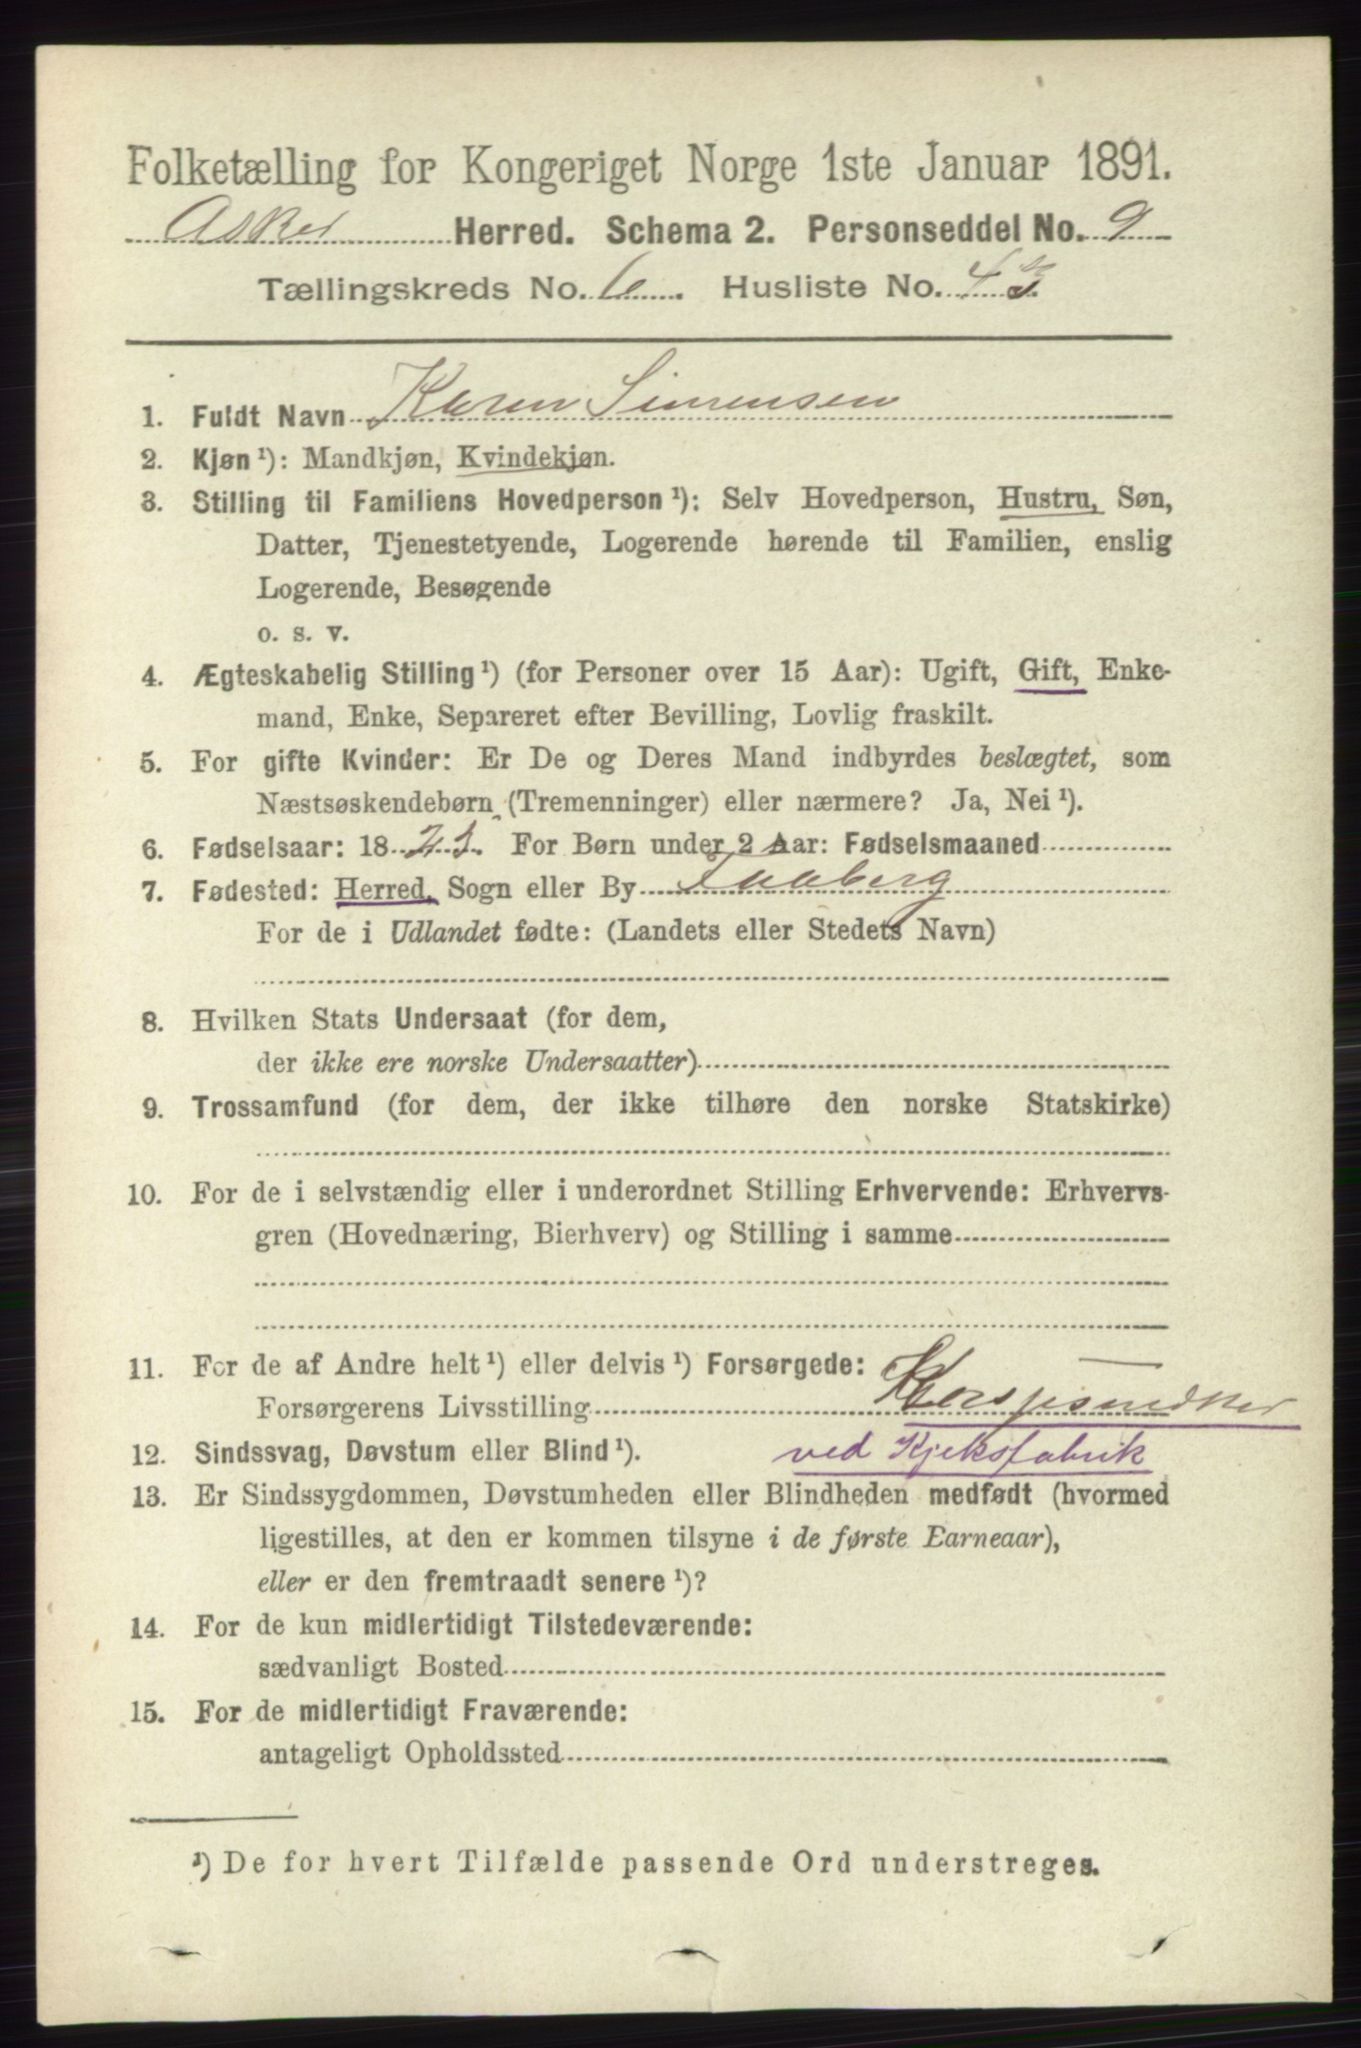 Folketælling for Kongeriget Norge 1ste Januar 1891.
Asker Herred. Schema 2. Personseddel No. 9
Tællingskreds No. 6. Husliste No. 43
1. Fuldt Navn Karen Simensen
2. Kjøn ¹): Mandkjøn, Kvindekjøn.
3. Stilling til Familiens Hovedperson ¹): Selv Hovedperson, Hustru, Søn,
Datter, Tjenestetyende, Logerende hørende til Familien, enslig
Logerende, Besøgende
o. s. v.
4. Ægteskabelig Stilling ¹) (for Personer over 15 Aar): Ugift, Gift, Enke-
mand, Enke, Separeret efter Bevilling, Lovlig fraskilt.
5. For gifte Kvinder: Er De og Deres Mand indbyrdes beslægtet, som
Næstsøskendebørn (Tremenninger) eller nærmere? Ja, Nei ¹).
6. Fødselsaar: 18 23. For Børn under 2 Aar: Fødselsmaaned
7. Fødested: Herred, Sogn eller By Faaberg
For de i Udlandet fødte: (Landets eller Stedets Navn)
8. Hvilken Stats Undersaat (for dem,
der ikke ere norske Undersaatter)
9. Trossamfund (for dem, der ikke tilhøre den norske Statskirke)
10. For de i selvstændig eller i underordnet Stilling Erhvervende: Erhvervs-
gren (Hovednæring, Bierhverv) og Stilling i samme
11. For de af Andre helt ¹) eller delvis ¹) Forsørgede: —
Forsørgerens Livsstilling
12. Sindssvag, Døvstum eller Blind ¹). ved Kjeksfabrik
13. Er Sindssygdommen, Døvstumheden eller Blindheden medfødt (hvormed
ligestilles, at den er kommen tilsyne i de første Earneaar),
eller er den fremtraadt senere ¹)?
14. For de kun midlertidigt Tilstedeværende:
sædvanligt Bosted
15. For de midlertidigt Fraværende:
antageligt Opholdssted
¹) De for hvert Tilfælde passende Ord understreges.